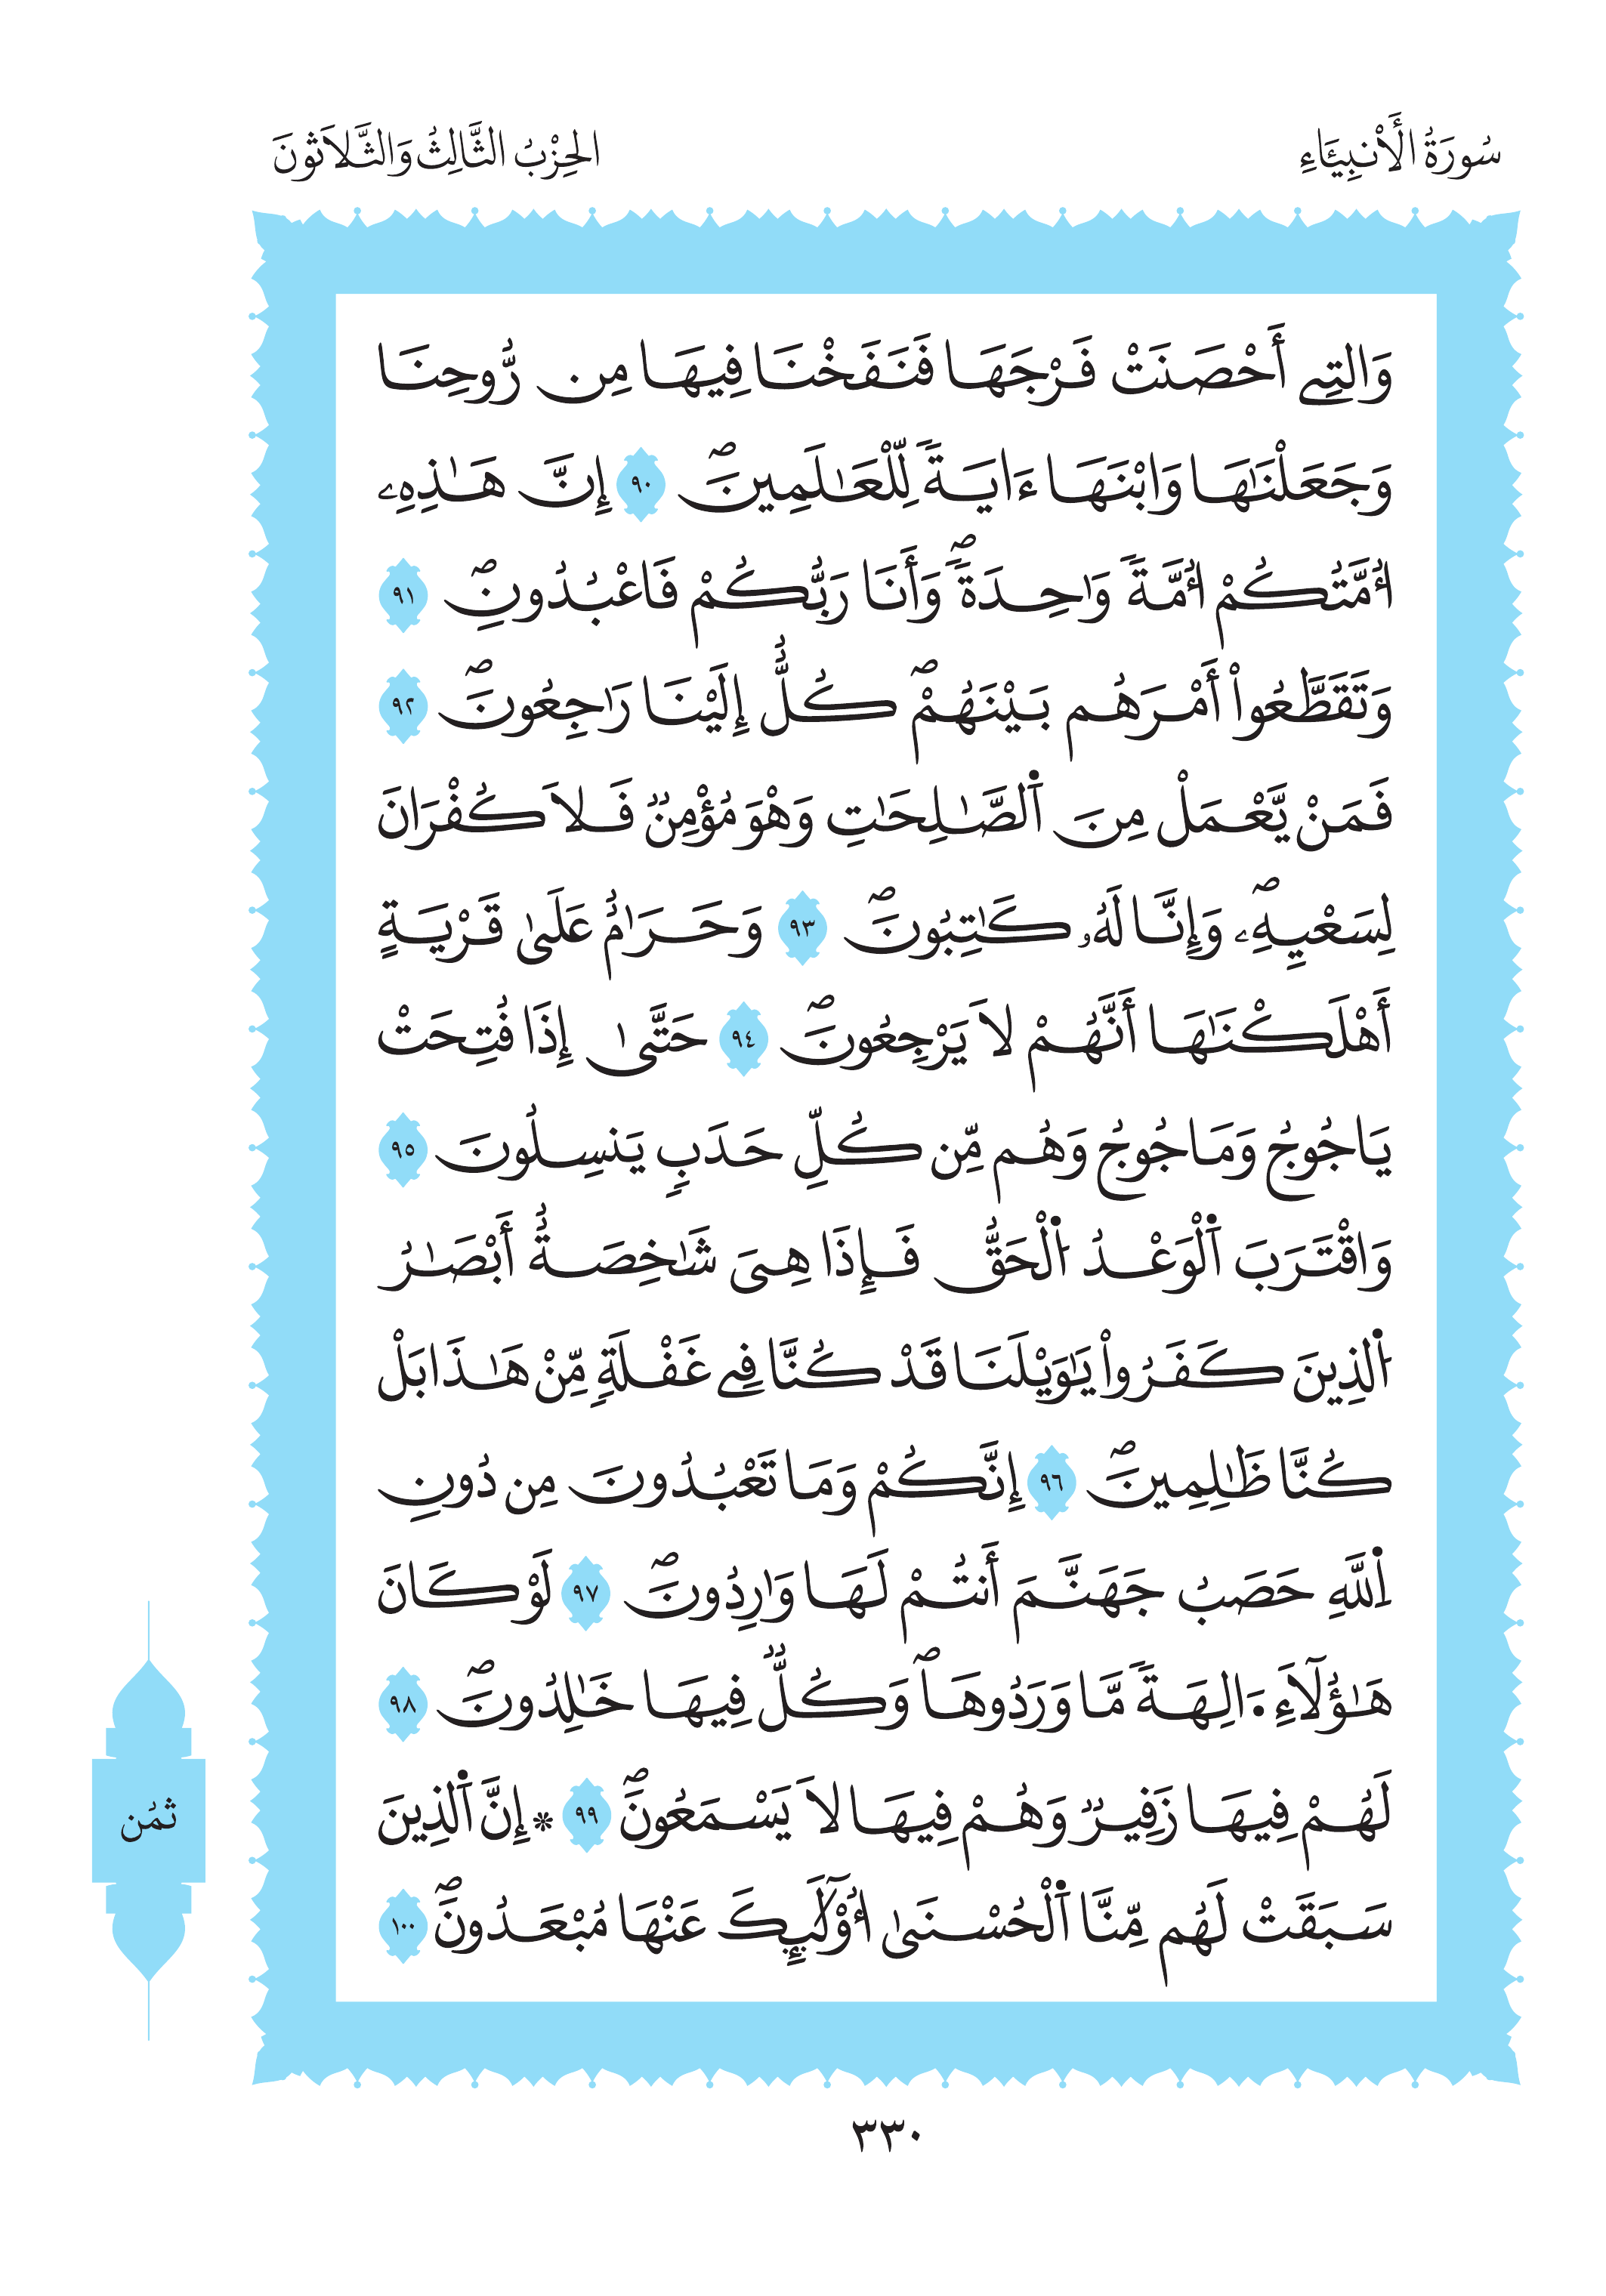 سُورَةُ الْأَنبِيَاءِ
الحِزْبُ الثَّالِثُ وَالثَّلَاثُونَ
وَالتِے أَحْصَنَتْ فَرْجَهَا فَنَفَخْنَا فِيهَا مِن رُّوحِنَا
وَجَعَلْنَٰهَا وَابْنَهَا ءَايَةٗ لِّلْعَٰلَمِينَۖ ٩٠ إِنَّ هَٰذِهِۦ
أُمَّتُكُمْ أُمَّةٗ وَٰحِدَةٗۖ وَأَنَا رَبُّكُمْ فَاعْبُدُونِۖ ٩١
وَتَقَطَّعُواْ أَمْرَهُم بَيْنَهُمْۖ كُلٌّ إِلَيْنَا رَٰجِعُونَۖ ٩٢
فَمَنْ يَّعْمَلْ مِنَ اَ۬لصَّٰلِحَٰتِ وَهْوَ مُؤْمِنٞ فَلَا كُفْرَانَ
لِسَعْيِهِۦۖ وَإِنَّا لَهُۥ كَٰتِبُونَۖ ٩٣ وَحَرَٰمٌ عَلَىٰ قَرْيَةٍ
أَهْلَكْنَٰهَا أَنَّهُمْ لَا يَرْجِعُونَۖ ٩٤ حَتَّىٰ إِذَا فُتِحَتْ
يَاجُوجُ وَمَاجُوجُ وَهُم مِّن كُلِّ حَدَبٖ يَنسِلُونَ ٩٥
وَاقْتَرَبَ اَ۬لْوَعْدُ اُ۬لْحَقُّ فَإِذَا هِىَ شَٰخِصَةٌ أَبْصَٰرُ
اُ۬لذِينَ كَفَرُواْ يَٰوَيْلَنَا قَدْ كُنَّا فِے غَفْلَةٖ مِّنْ هَٰذَا بَلْ
كُنَّا ظَٰلِمِينَۖ ٩٦ إِنَّكُمْ وَمَا تَعْبُدُونَ مِن دُونِ
اِ۬للَّهِ حَصَبُ جَهَنَّمَ أَنتُمْ لَهَا وَٰرِدُونَۖ ٩٧ لَوْ كَانَ
هَٰؤُلَآءِ اٰلِهَةٗ مَّا وَرَدُوهَاۖ وَكُلّٞ فِيهَا خَٰلِدُونَۖ ٩٨
لَهُمْ فِيهَا زَفِيرٞ وَهُمْ فِيهَا لَا يَسْمَعُونَۖ ٩٩ * إِنَّ اَ۬لذِينَ
سَبَقَتْ لَهُم مِّنَّا اَ۬لْحُسْنَىٰ أُوْلَٰٓئِكَ عَنْهَا مُبْعَدُونَۖ ١٠٠
ثمُن
٣٣٠